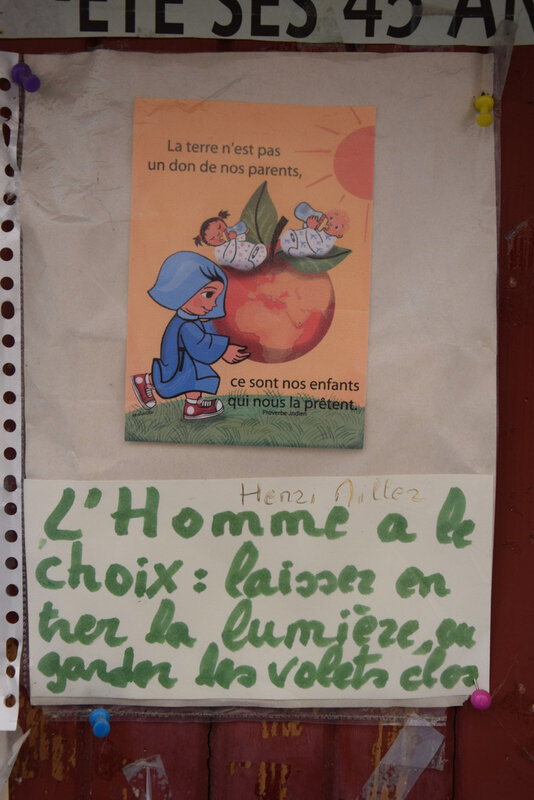 ÊTÉ SES 45 AN
La terre n'est pas
un don de nos parents,
ce sont nos enfants
qui nous la prêtent.
Proverbe Indien
Henri Miller
L'Homme a le
choix : laisser en
trer la lumière, ou
garder les volets clos